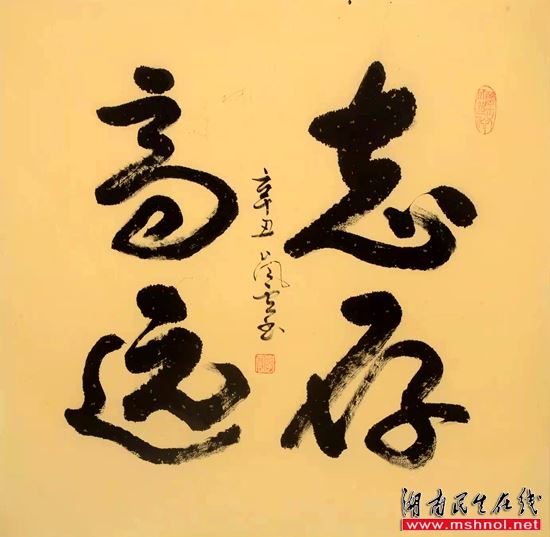 志存
高远
辛丑
湖南民生在线
www.mshnol.net